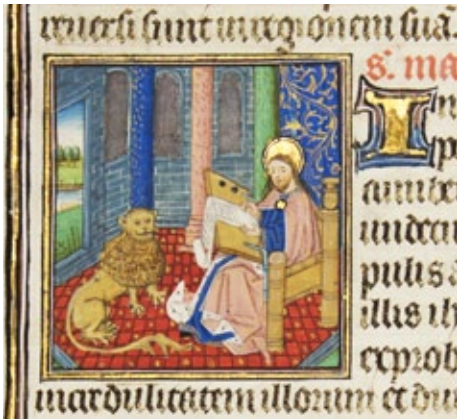 reuersi sunt in regionem suā.
s. ma
In
p
cumbe
undeci
pulis a
illis ih
exprob
incredulitatem illorum et du